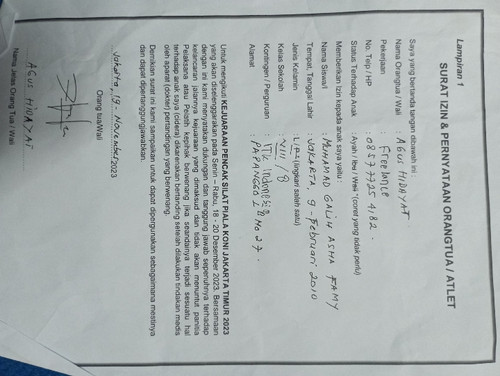 Lampiran 1
SURAT IZIN & PERNYATAAN ORANGTUA / ATLET
Saya yang bertanda tangan dibawah ini :
Nama Orangtua / Wali : AGUS HIDAYAT.
Pekerjaan : Freelance
No. Telp / HP : 0857 7725 4182.
Status Terhadap Anak : Ayah / Ibu / Wali *(coret yang tidak perlu)
Memberikan Izin kepada anak saya yaitu :
Nama Siswa/i : MUHAMAD GALIH ASHA FAMY
Tempat, Tanggal Lahir : JAKARTA, 9 - Februari 2010
Jenis Kelamin : L / P * (lingkari salah satu)
Kelas Sekolah : VIII / B
Kontingen / Perguruan : indonesia
Alamat : PAPANGGO No 27.
Untuk mengikuti KEJUARAAN PENCAK SILAT PIALA KONI JAKARTA TIMUR 2023
yang akan diselenggarakan pada Senin – Rabu, 18 - 20 Desember 2023. Bersamaan
dengan ini kami menyatakan dukungan dan tanggung jawab sepenuhnya terhadap
kelancaran jalannya kejuaraan yang dimaksud dan tidak akan menuntut panitia
Pelaksana atau Pelatih kepihak berwenang jika seandainya terjadi sesuatu hal
terhadap anak saya (cidera) dikarenakan bertanding setelah dilakukan tindakan medis
oleh aparat (dokter) pertandingan yang berwenang.
Demikian surat ini kami sampaikan untuk dapat dipergunakan sebagaimana mestinya
dan dapat dipertanggungjawabkan.
Jakarta, 19 - November 2023
Orang tua/Wali
AGUS HIDAYAT
Nama Jelas Orang Tua / Wali